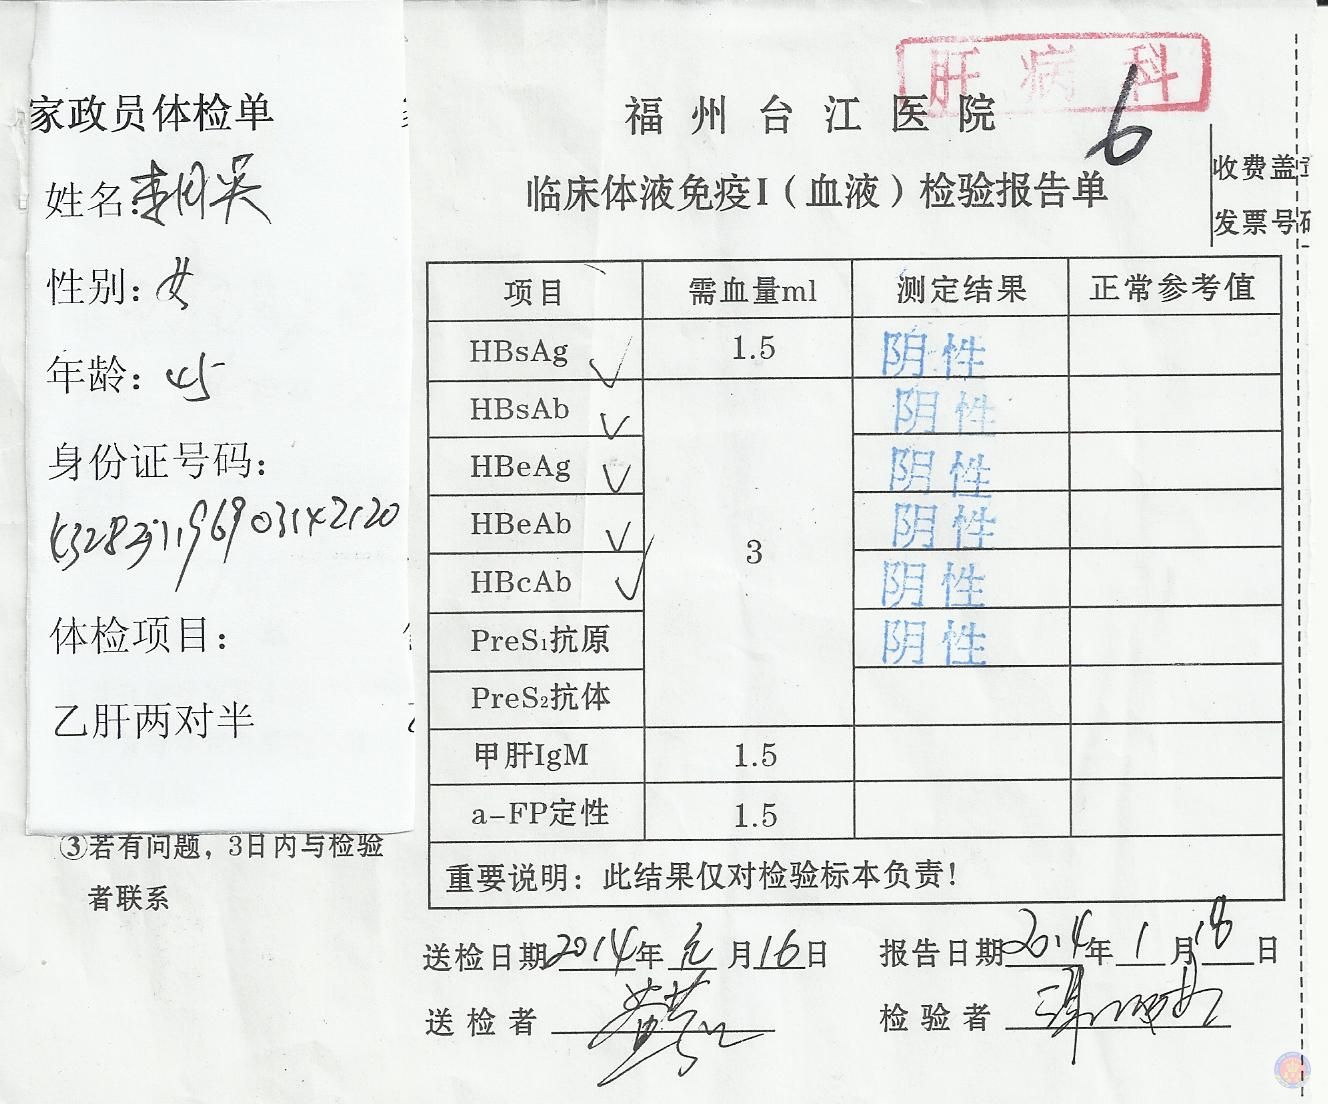 家政员体检单
姓名:
性别: 女
年龄: 45
身份证号码:
体检项目:
乙肝两对半
③若有问题，3日内与检验
者联系
肝病科
福州台江医院
6
临床体液免疫I（血液）检验报告单
收费盖
发票号码
项目 需血量ml 测定结果 正常参考值
HBsAg ✓ 1.5 阴性
HBsAb ✓ 阴性
HBeAg ✓ 阴性
HBeAb ✓ 3 阴性
HBcAb ✓ 阴性
PreS₁抗原 阴性
PreS₂抗体
甲肝IgM 1.5
a-FP定性 1.5
重要说明：此结果仅对检验标本负责！
送检日期2014年元月16日 报告日期2014年1月18日
送检者 检验者